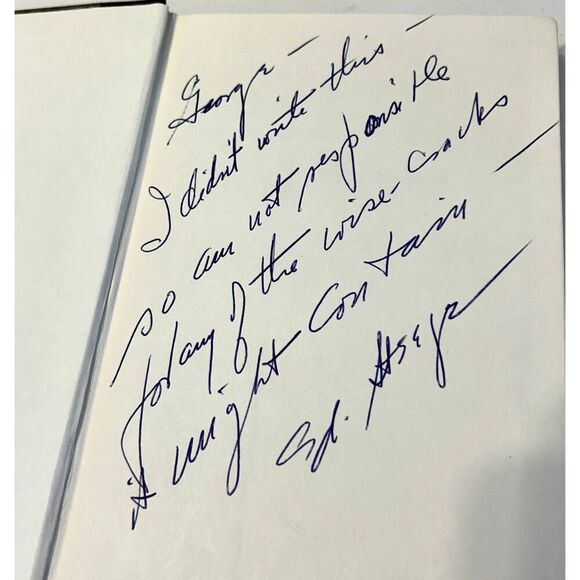 George —
I didn't write this —
so am not responsible
for any of the wise-cracks
it might contain —
Ed.